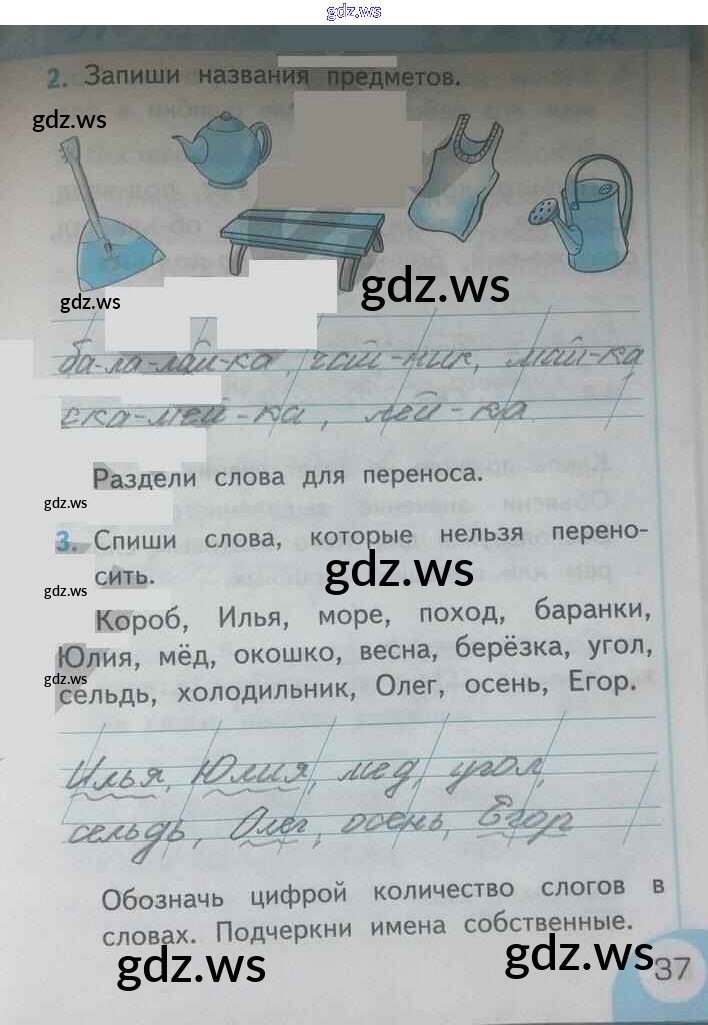 gdz.ws
2. Запиши названия предметов.
gdz.ws
gdz.ws
gdz.ws
ба-ла-лай-ка, чай-ник, май-ка
ска-мей-ка, лей-ка
Раздели слова для переноса.
gdz.ws
3. Спиши слова, которые нельзя перено-
сить.
gdz.ws
gdz.ws
Короб, Илья, море, поход, баранки,
Юлия, мёд, окошко, весна, берёзка, угол,
gdz.ws
сельдь, холодильник, Олег, осень, Егор.
Илья, Юлия, мед, угол,
сельдь, Олег, осень, Егор
Обозначь цифрой количество слогов в
словах. Подчеркни имена собственные.
gdz.ws
gdz.ws
37